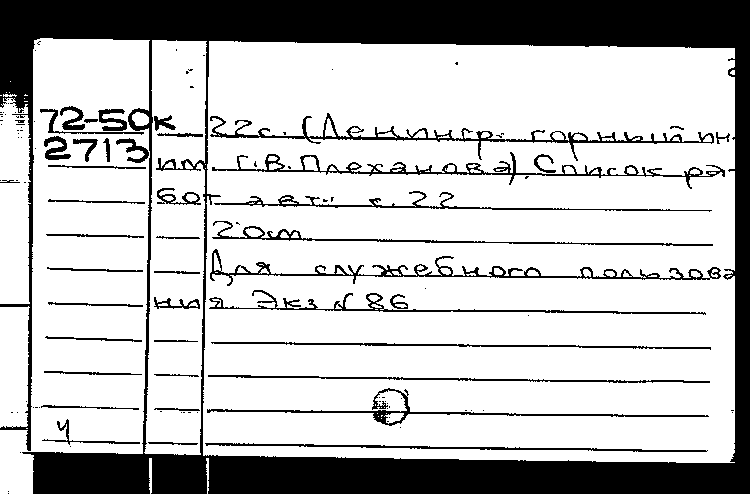 2
72-50к 22с. (Ленингр. горный ин-
2713 им. Г.В.Плеханова). Список ра-
бот авт.: с. 22
20см
Для служебного пользова
ния. Экз № 86
4